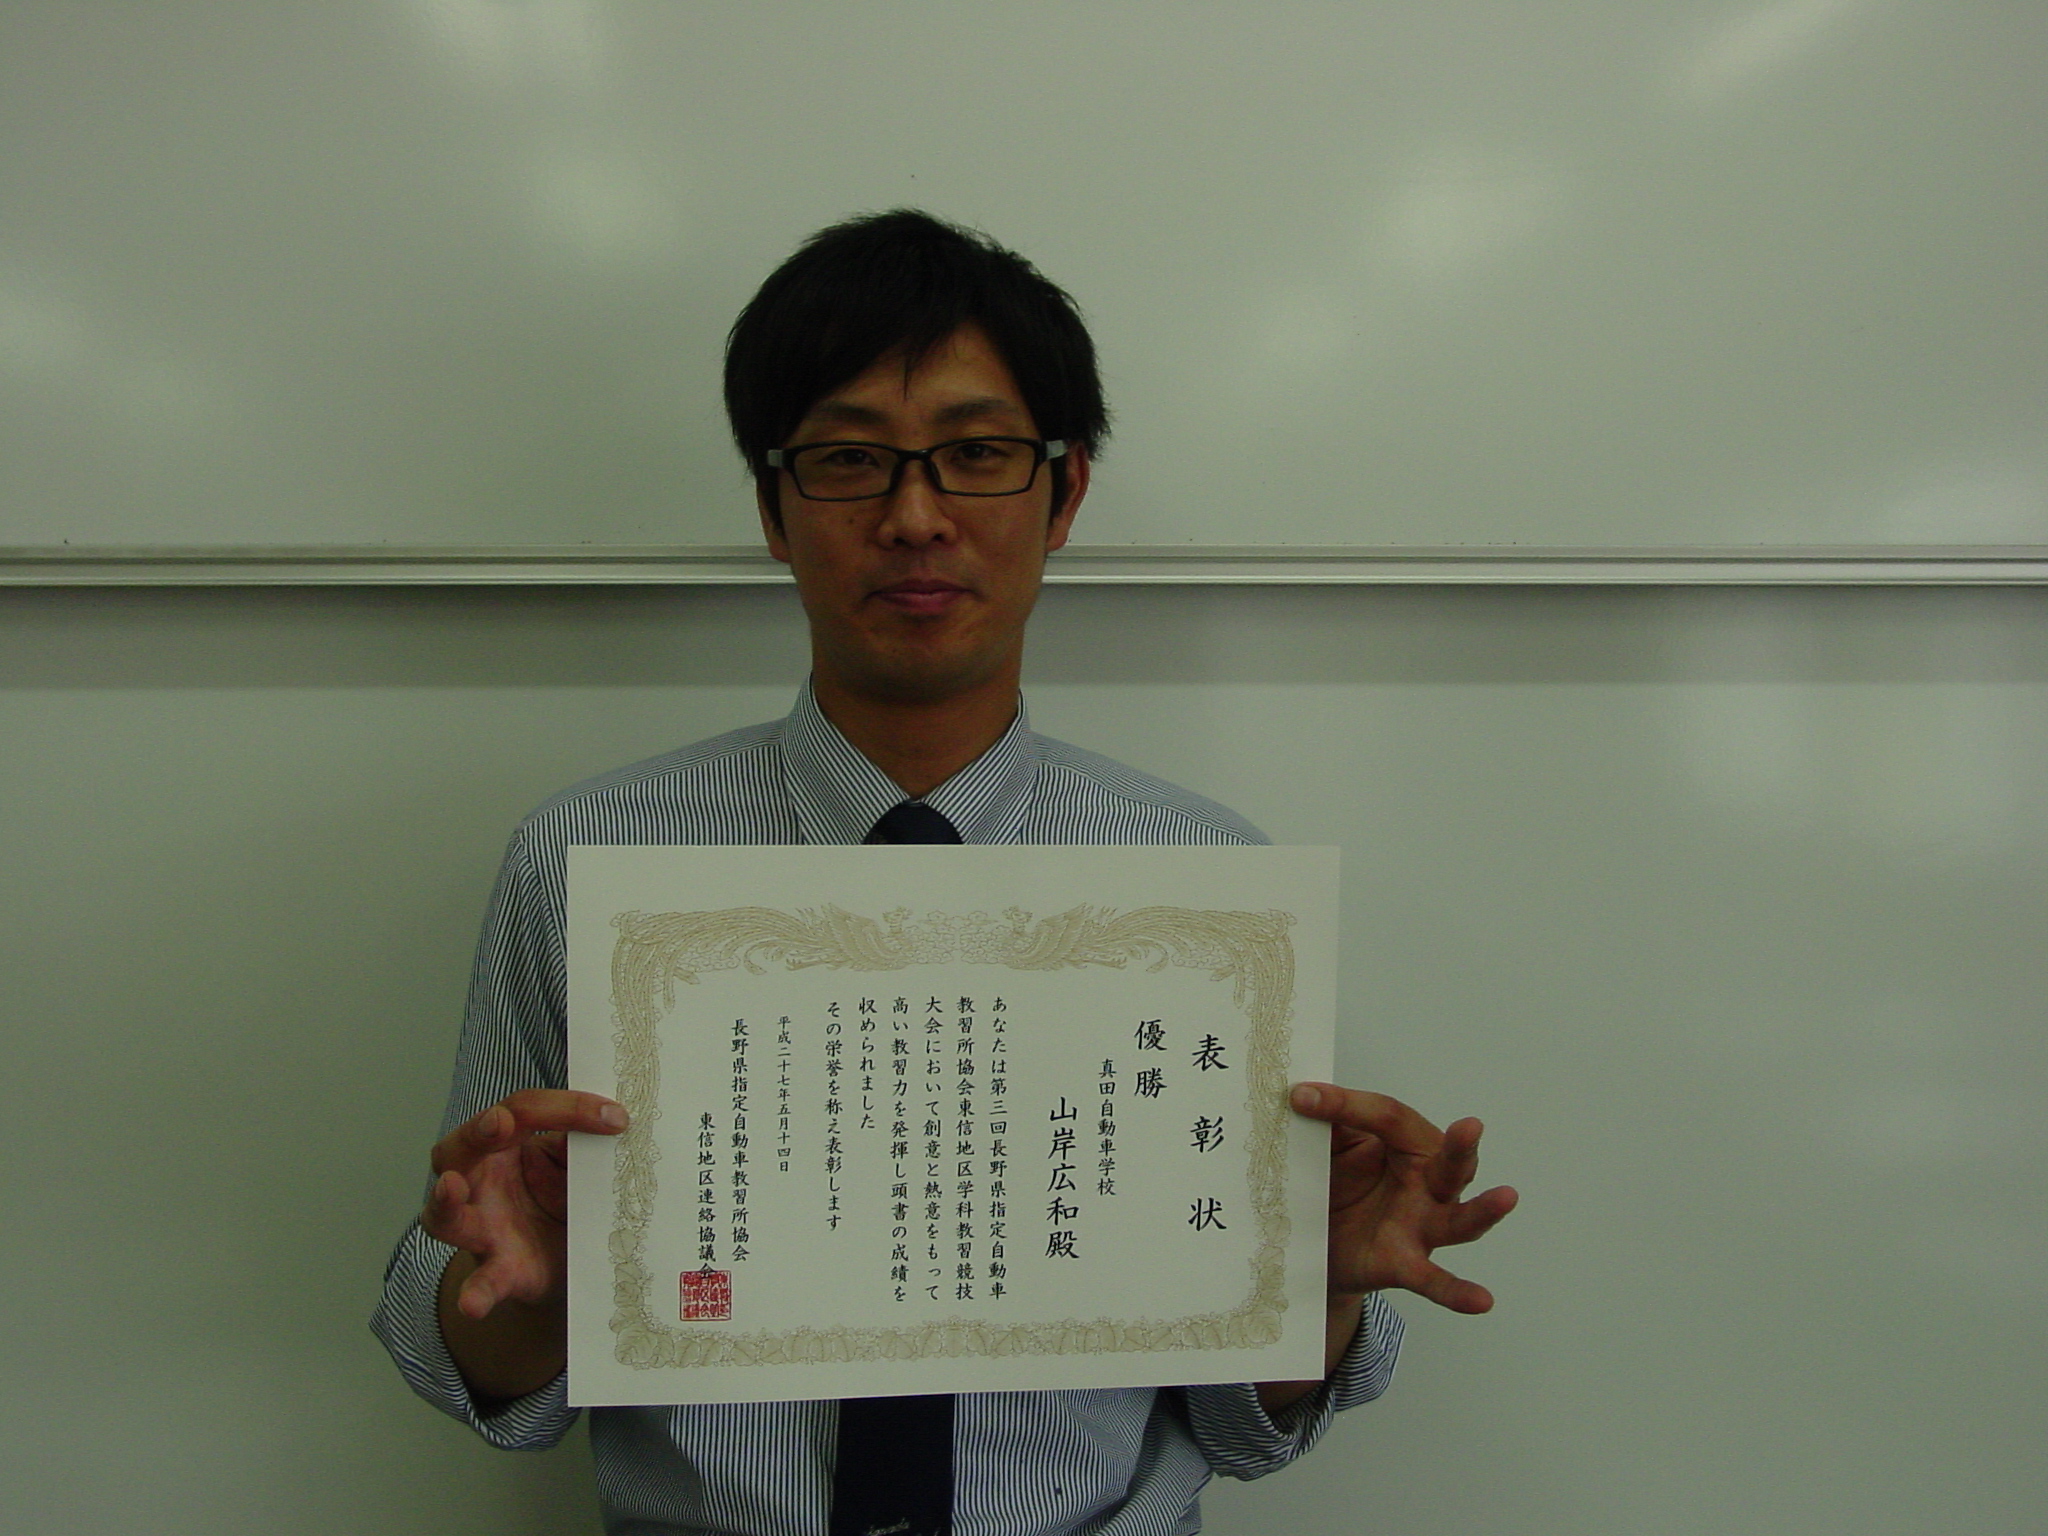 表彰状
優勝
真田自動車学校
山岸広和殿
あなたは第三回長野県指定自動車
教習所協会東信地区学科教習競技
大会において創意と熱意をもって
高い教習力を発揮し頭書の成績を
収められました
その栄誉を称え表彰します
平成二十七年五月十四日
長野県指定自動車教習所協会
東信地区連絡協議会